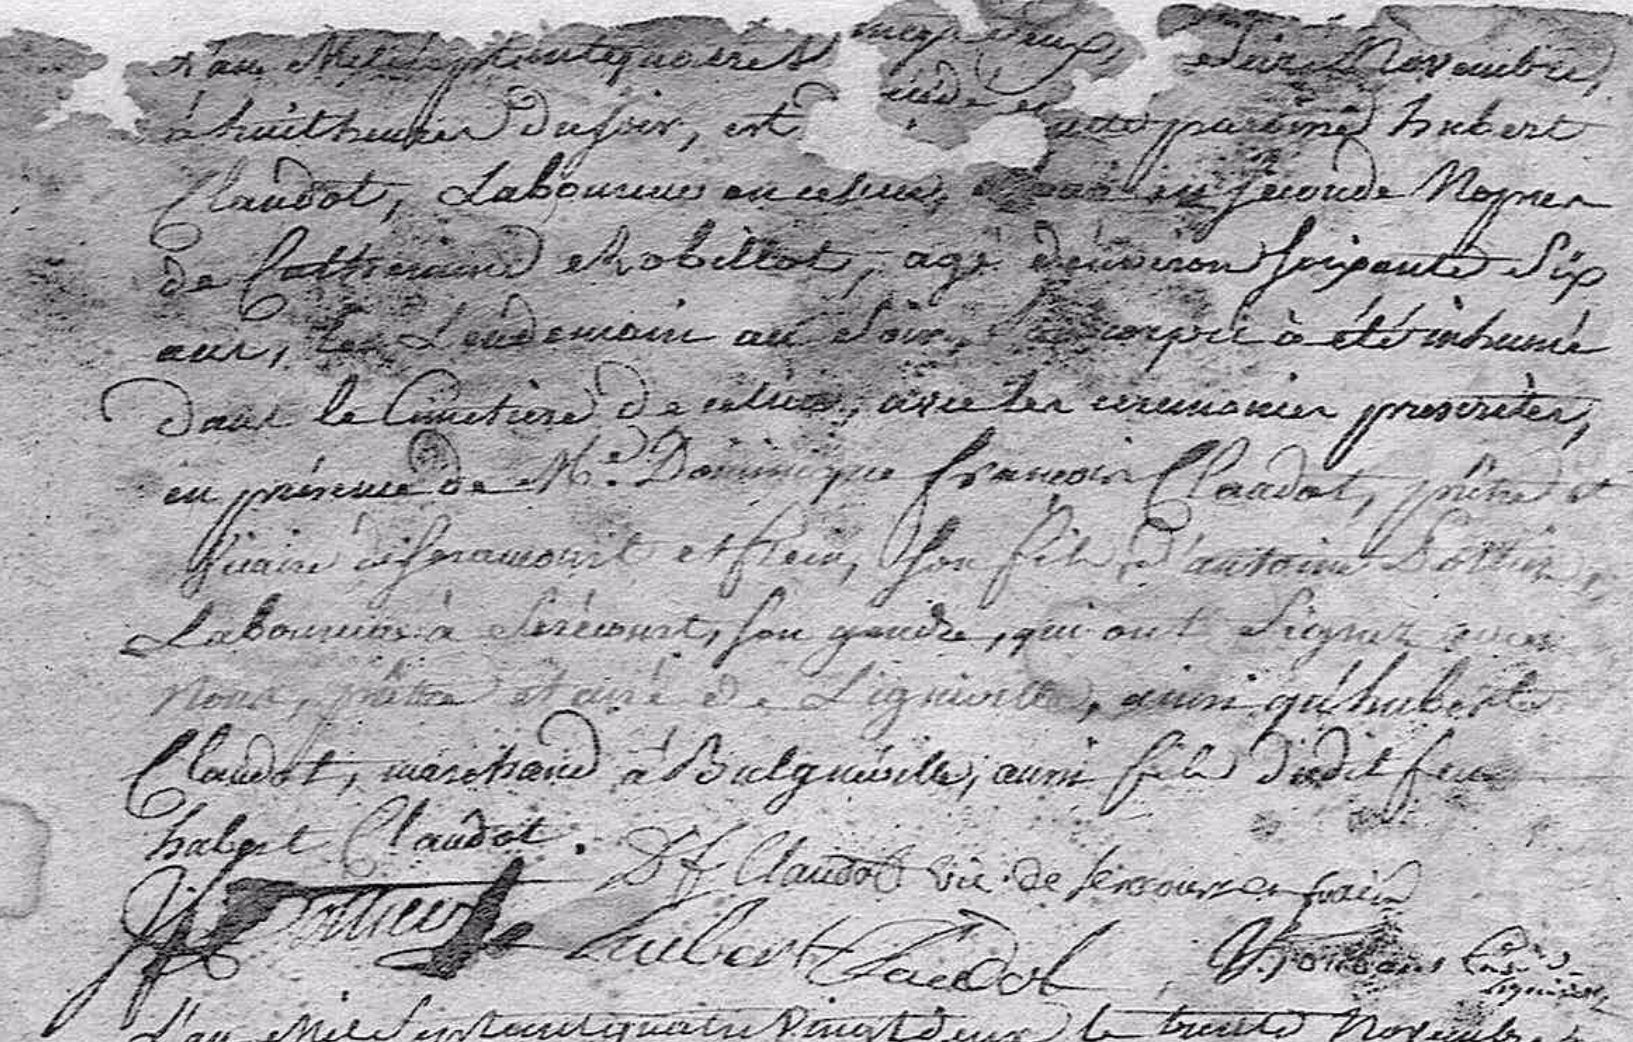 L'an Mil Sept cent quatre vingt deux, dix Novembre,
à huit heures du soir, est décédé en cette paroisse hubert
Claudot, Laboureur en ce lieu, Epoux en seconde Nopces
de Catherine Robillot, agé d'environ soixante Six
ans, le Lendemain au Soir, Son corps à été inhumé
dans le Cimetière de ce lieu, avec les ceremonies prescrites,
en présence de Mr. Dominique françois Claudot, prêtre et
vicaire de Seraucourt et frein, son fils, d'antoine Pottier,
Laboureur à Serécourt, son gendre, qui ont Signez avec
nous, prêtre et curé de Ligniville, ainsi qu'hubert
Claudot, marchand à Bulgnéville, aussi fils dudit feu
hubert Claudot.
D f Claudot vic. de et frain
Pottier hubert Claudot Curé de Ligniville
L'an Mil Sept cent quatre Vingt deux le trente Novembre